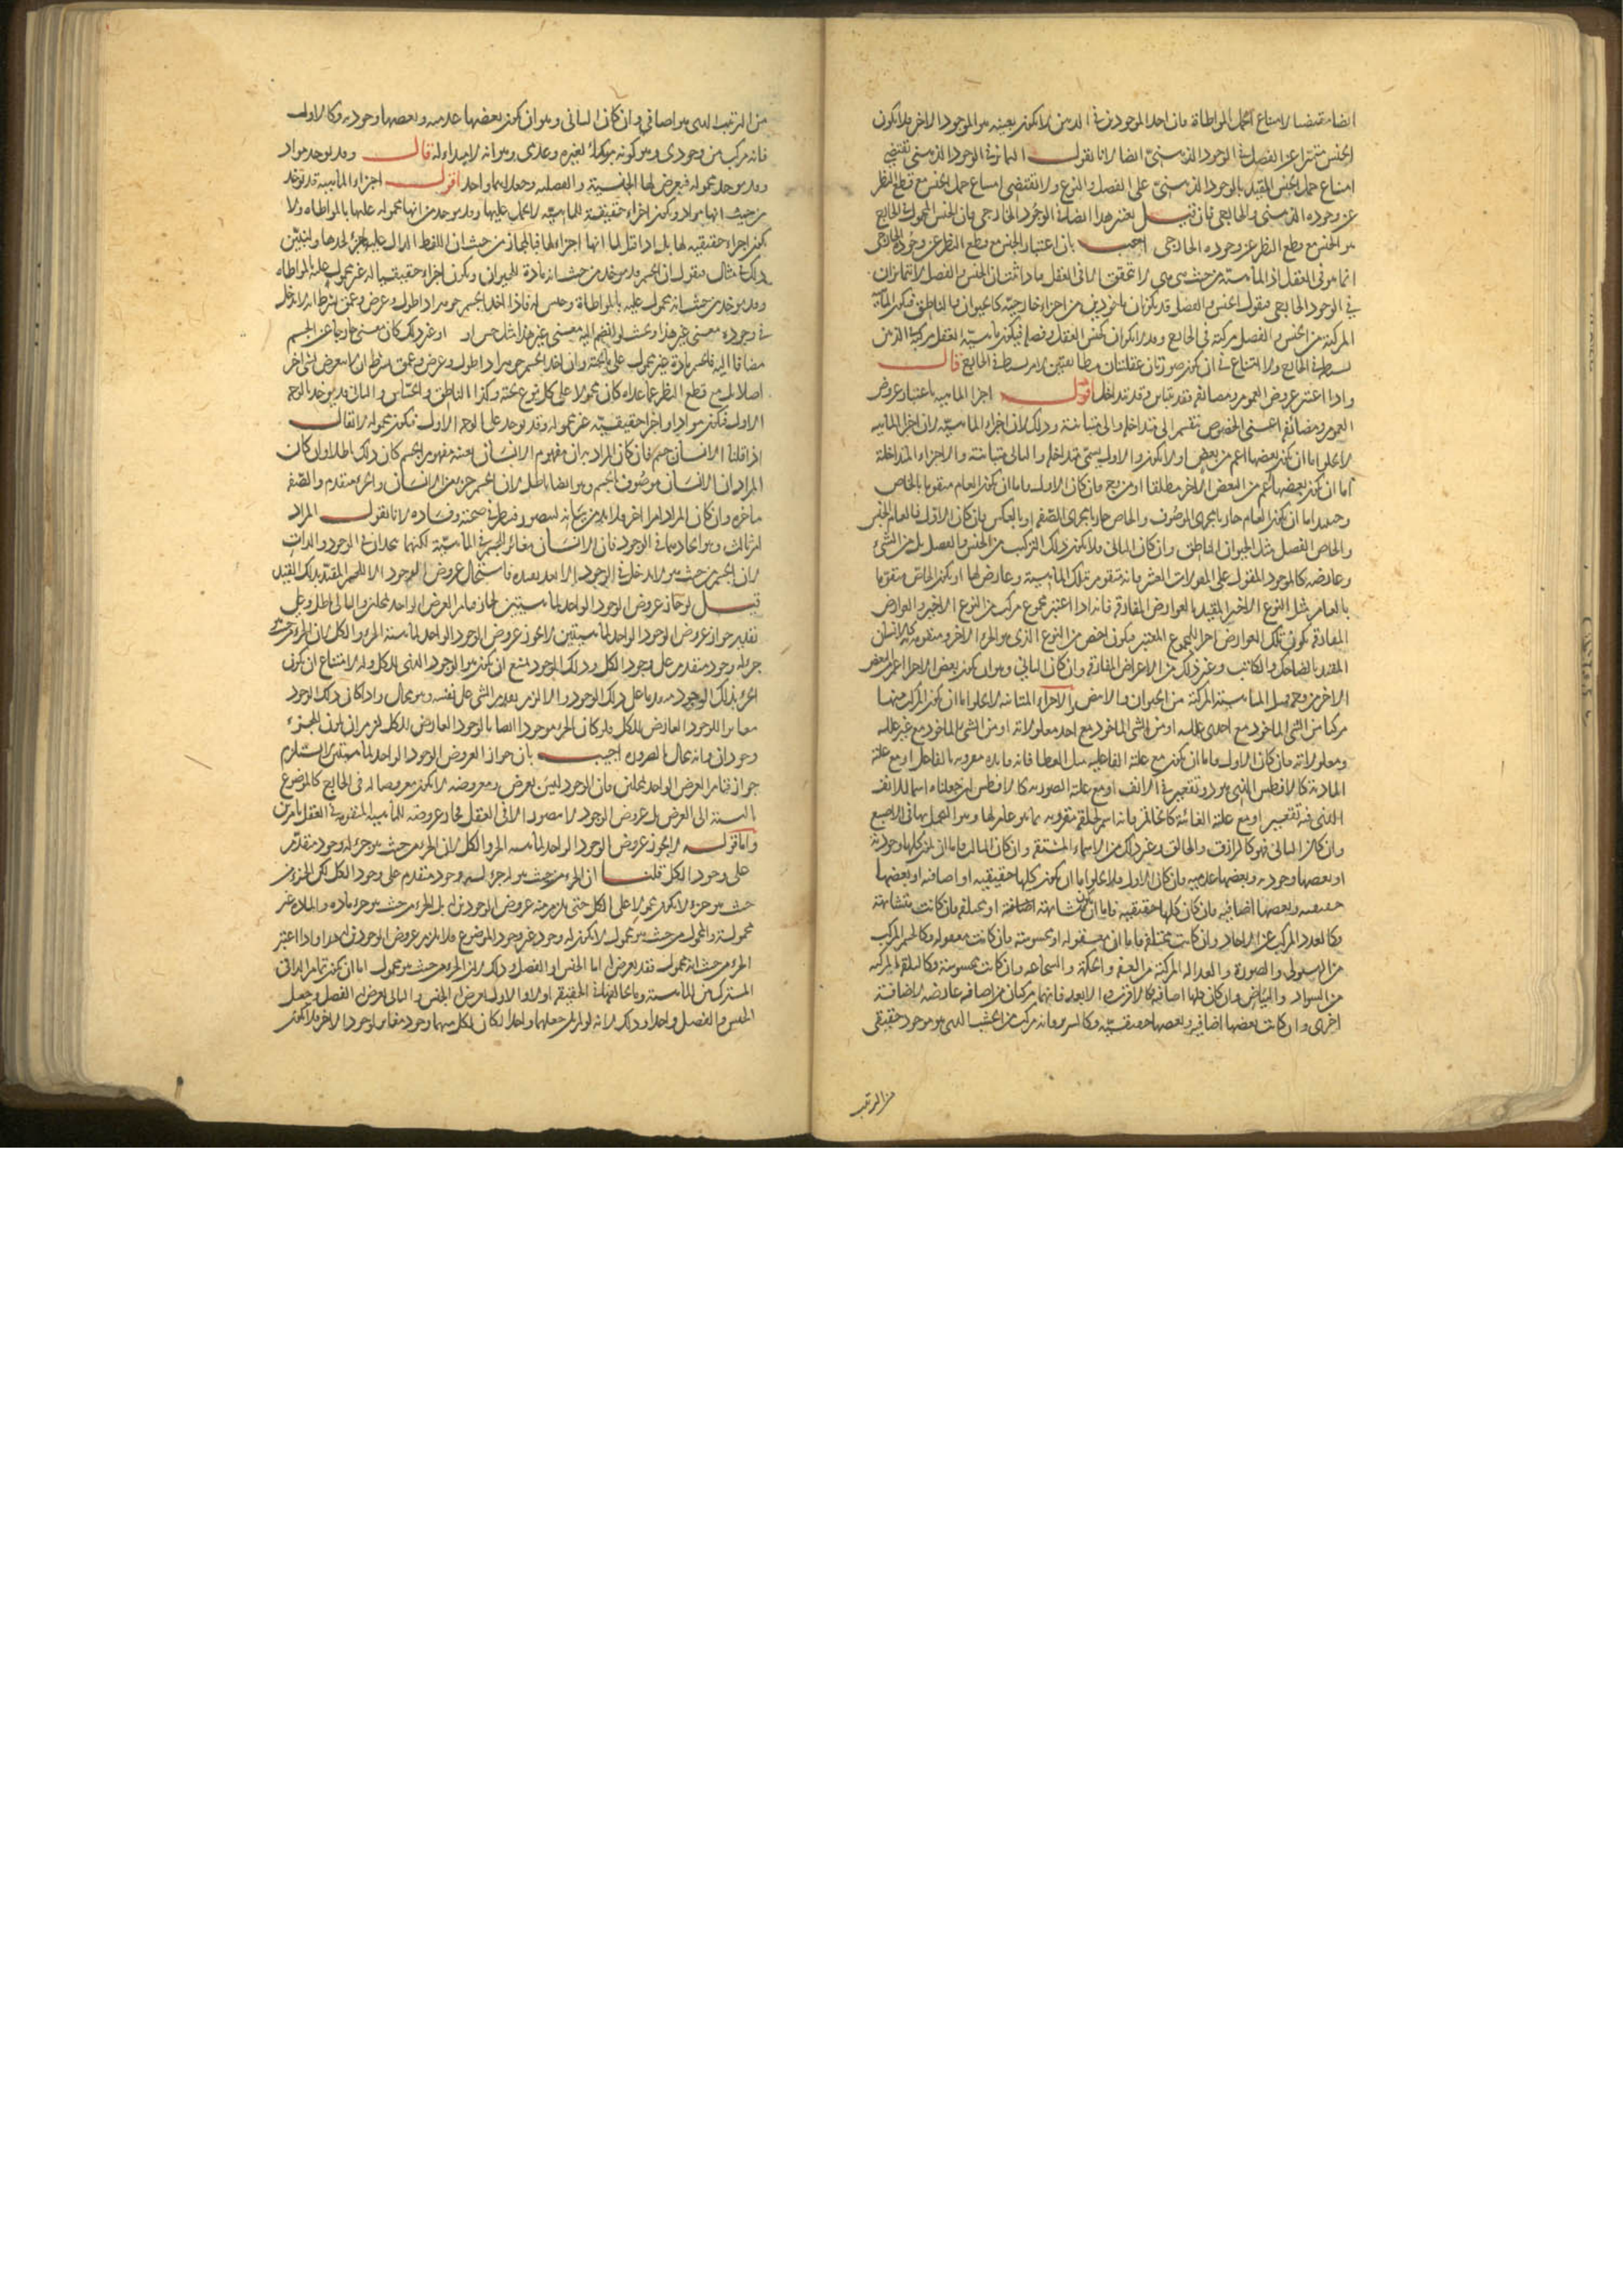 ايضا مقتضيا لامتناع الحمل المواطاة فان احد الموجودين في الذهن لا يكون بعينه هو الموجود الاخر فلا يكون
الجنس متميزا عن الفصل في الوجود الذهني ايضا لانا نقول التمايز في الوجود الذهني يقتضي
امتناع حمل الجنس المقيد بالوجود الذهني على الفصل والنوع ولا يقتضي امتناع حمل الجنس مع قطع النظر
عن وجوده الذهني والخارجي فان قيل يعتبر هذا ايضا في الوجود الخارجي فان الجنس المحمول في الخارج
هو الجنس مع قطع النظر عن وجوده الخارجي اجيب بان اعتبار الجنس مع قطع النظر عن وجوده الخارجي
انما هو في العقل اذ الماهية من حيث هي هي لا تتحقق الا في العقل فاذا ثبت ان الجنس والفصل لا يتمايزان
في الوجود الخارجي فنقول الجنس والفصل قد يكونان ماخوذين من اجزاء خارجية كالحيوان والناطق فيكون الماهية
المركبة من الجنس والفصل مركبة في الخارج وقد لا يكونان كجنس العقل وفصله فيكون ماهية العقل مركبة في الذهن
بسيطة في الخارج ولا امتناع في ان يكون صورتان عقليتان مطابقتين لامر بسيط في الخارج قال
واذا اعتبر عروض العموم ومضايفه فقد تتباين وقد تتداخل اقول اجزاء الماهية باعتبار عروض
العموم ومضايفه اعني الخصوص تنقسم الى متداخلة والى متباينة وذلك لان اجزاء الماهية
لا يخلو اما ان يكون بعضها اعم من بعض او لا يكون والاول يسمى متداخلة والثاني متباينة والاجزاء المتداخلة
اما ان يكون بعضها اعم من البعض الاخر مطلقا او من وجه فان كان الاول فاما ان يكون العام متقوما بالخاص
وحينئذ اما ان يكون العام جاريا مجرى الموصوف والخاص جاريا مجرى الصفة او بالعكس فان كان الاول فالعام الجنس
والخاص الفصل مثل الحيوان الناطق وان كان الثاني فلا يكون ذلك التركيب من الجنس والفصل بل من الشيء
وعارضه كالموجود المقول على المقولات العشر فانه متقوم بتلك الماهية وعارض لها او يكون الخاص متقوما
بالعام مثل النوع الاخير المقيد بالعوارض المفارقة فانه اذا اعتبر مجموع مركب من النوع الاخير والعوارض
المفارقة يكون تلك العوارض اجزاء للمجموع المعتبر ويكون اخص من النوع الذي هو الجزء الاخر ومتقومة به كالانسان
المقيد بالضاحك والكاتب وغير ذلك من الاعراض المفارقة وان كان الثاني وهو ان يكون بعض الاجزاء اعم من البعض
الاخر من وجه مثل الماهية المركبة من الحيوان والابيض والاجزاء المتباينة لا يخلو اما ان يكون المركب منها
مركبا من الشيء الماخوذ مع احدى علله او من الشيء الماخوذ مع احد معلولاته او من الشيء الماخوذ مع غير علله
ومعلولاته فان كان الاول فاما ان يكون مع علته الفاعلية مثل العطا فانه فائدة مقرونة بالفاعل او مع علته
المادية كالافطس الذي هو ذو تقعير في الانف او مع علته الصورية كالافطس ان جعلناه اسما للانف
الذي فيه تقعير او مع علته الغائية كالخاتم فانه اسم لحلقة مقرونة بما هو غاية لها وهو التجمل بها في الاصبع
وان كان الثاني فهو كالرازق والخالق وغير ذلك من الاسماء المشتقة وان كان الثالث فاما ان يكون كلها وجودية
او بعضها وجودية وبعضها عدمية فان كان الاول فلا يخلو اما ان يكون كلها حقيقية او اضافية او بعضها
حقيقية وبعضها اضافية فان كان كلها حقيقية فاما ان يكون متشابهة او مختلفة فان كانت متشابهة
فكالعدد المركب عن الاحاد وان كانت مختلفة فاما ان معقولة او محسوسة فان كانت معقولة فكالجسم المركب
من الهيولى والصورة والعدالة المركبة من العفة والحكمة والشجاعة وان كانت محسوسة فكالبلقة المركبة
من السواد والبياض وان كان كلها اضافية كالاقرب والابعد فانهما مركبان من اضافة عارضة لاضافة
اخرى وان كانت بعضها اضافية وبعضها حقيقية فكالسرير فانه مركب من الخشب الذي هو موجود حقيقي
من الترتيب
من الترتيب الذي هو اضافي وان كان الثاني وهو ان يكون بعضها عدمية وبعضها وجودية فكالاول
فانه مركب من وجودي وهو كونه مبدأ لغيره وعدمي وهو انه لا مبداء له قال وقد يوخذ مواد
وقد يوخذ محمولة فيعرض لها الجنسية والفصلية وجعلاهما واحد اقول اجزاء الماهية قد توخذ
من حيث انها مواد ويكون اجزاء حقيقية للماهية لا يحمل عليها وقد يوخذ من انها محمولة عليها بالمواطاة ولا
يكون اجزاء حقيقية لها بل اذا قيل لها انها اجزاء لها فبالمجاز من حيث ان اللفظ الدال عليها جزء لحدها ولنبين
ذلك في مثال فنقول ان الجسم قد يوخذ من حيث انه مادة للحيوان ويكون اجزاء حقيقيا له غير محمول عليه بالمواطاة
وقد يوخذ من حيث انه محمول عليه بالمواطاة وجنس له فاذا اخذ الجسم جوهرا ذا طول وعرض وعمق بشرط انه لا يدخل
في وجوده معنى غير هذا وبحيث لو انضم اليه معنى غير هذا مثل حس او او غير ذلك كان معنى خارجا عن الجسم
مضافا اليه فالجسم مادة غير محمول على ما تحته وان اخذ الجسم جوهرا ذا طول وعرض وعمق بشرط ان لا يتعرض لشيء اخر
اصلا بل مع قطع النظر عما عداه كان محمولا على كل نوع تحته وكذا الناطق والحساس والثاني قد يوخذ بالوجه
الاول فيكون مواد او اجزاء حقيقية غير محمولة وقد توخذ على الوجه الاول فيكون محمولة لا يقال
اذا قلنا الانسان جسم فان كان المراد به ان مفهوم الانسان بعينه مفهوم الجسم كان ذلك باطلا وان كان
المراد ان الانسان موصوف بالجسم وهو ايضا باطل لان الجسم جزء من الانسان والجزء متقدم والصفة
متاخرة وان كان المراد امرا اخر فلا بد من بيانه ليتصور فينظر في صحته وفساده لانا نقول المراد
امر ثالث وهو اتحادهما في الوجود فان الانسان مغاير الجسم في الماهية لكنهما يتحدان في الوجود والذات
لان الجسم من حيث هو لا يدخل في الوجود الا بعد تقييده فاستحال عروض الوجود الا للجسم المقيد بذلك القيد
قيل لو جاز عروض الوجود الواحد لماهيتين لجاز قيام العرض الواحد بمحلين والتالي باطل وعلى
تقدير جواز عروض الوجود الواحد لماهيتين لا يجوز عروض الوجود الواحد لماهية الجزء والكل لان الجزء من حيث هو
جزء له وجود متقدم على وجود الكل وذلك الوجود يمتنع ان يكون هو الوجود الذي للكل والا لامتناع ان يكون
الجزء بذلك الوجود متقدما على ذلك الوجود والا لزم تقدم الشيء على نفسه وهو محال واذا كان ذلك الوجود
مغايرا للوجود العارض للكل فلو كان الجزء موجودا ايضا بالوجود العارض للكل لزم ان يكون للجزء
وجودان وانه محال بالضرورة اجيب بان جواز العروض الوجود الواحد لماهيتين لا يستلزم
جواز قيام العرض الواحد بمحلين فان الوجود ليس بعرض ومعروضه لا يكون معروضا له في الخارج كالموضوع
بالنسبة الى العرض بل عروض الوجود لا يتصور الا في العقل فجاز عروضه للماهية المتقومة في العقل بامرين
واما قوله لا يجوز عروض الوجود الواحد لماهية الجزء والكل لان الجزء من حيث هو جزء له وجود متقدم
على وجود الكل قلنا ان الجزء من حيث هو له جزء له وجود متقدم على وجود الكل لكن الجزء من
حيث هو جزء لا يكون محمولا على الكل حتى يلزم منه عروض الوجودين له بل الجزء من حيث هو جزء مادة والمادة غير
محمولة والمحمول من حيث هو محمول لا يكون له وجود غير وجود الموضوع فلا يلزم عروض الوجودين له واذا اعتبر
الجزء من حيث انه محمول فقد يعرض له اما الجنس او الفصل وذلك لان الجزء من حيث هو محمول اما ان يكون تمام الذاتي
المشترك بين الماهية وما يخالفها في الحقيقة او لا والاول يعرض له الجنس والثاني يعرض له الفصل وجعل
الجنس والفصل واحد وذلك لانه لو لم يكن جعلهما واحدا لكان لكل منهما وجود مغاير لوجود الاخر فلا يكون